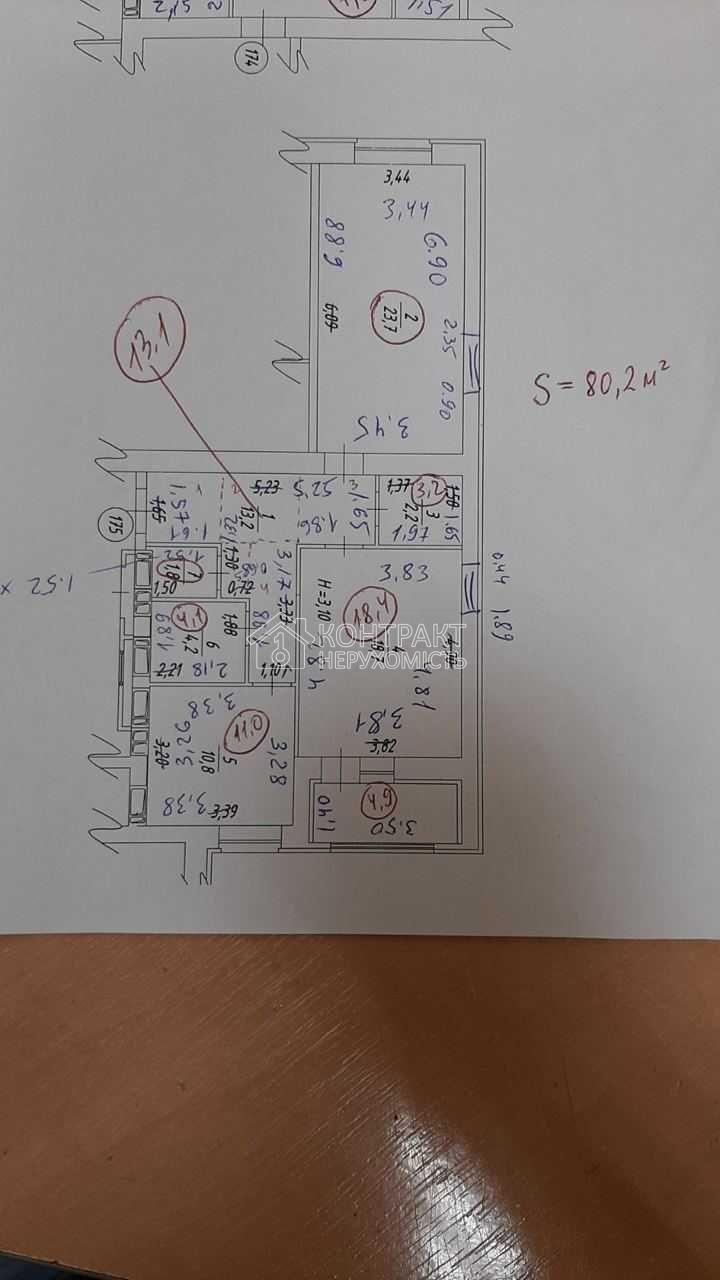 174
3,44
3,44
6.90
6.88
6,89
2
23,7
2.35
0.90
3.45
13.1
S = 80,2 м²
5,23
5.25
1,37
3,2
1,50
3
2,2
1.65
1.97
1.65
1.57
1,65
1.61
1
13,2
1.86
175
1.52
1.52 x
7
1,8
1,50
1,30
0,72
3.17
3,23
H=3,10
3.83
18,4
4
КОНТРАКТ
НЕРУХОМІСТЬ
0.44
1.89
4,1
6
4,2
1.89
1,88
1.86
2,21
2,18
1,10
4.81
4.81
3.81
3,82
3.38
11,0
5
10,8
3.26
3,20
3.28
3,38
3,39
4,9
1,40
3.50